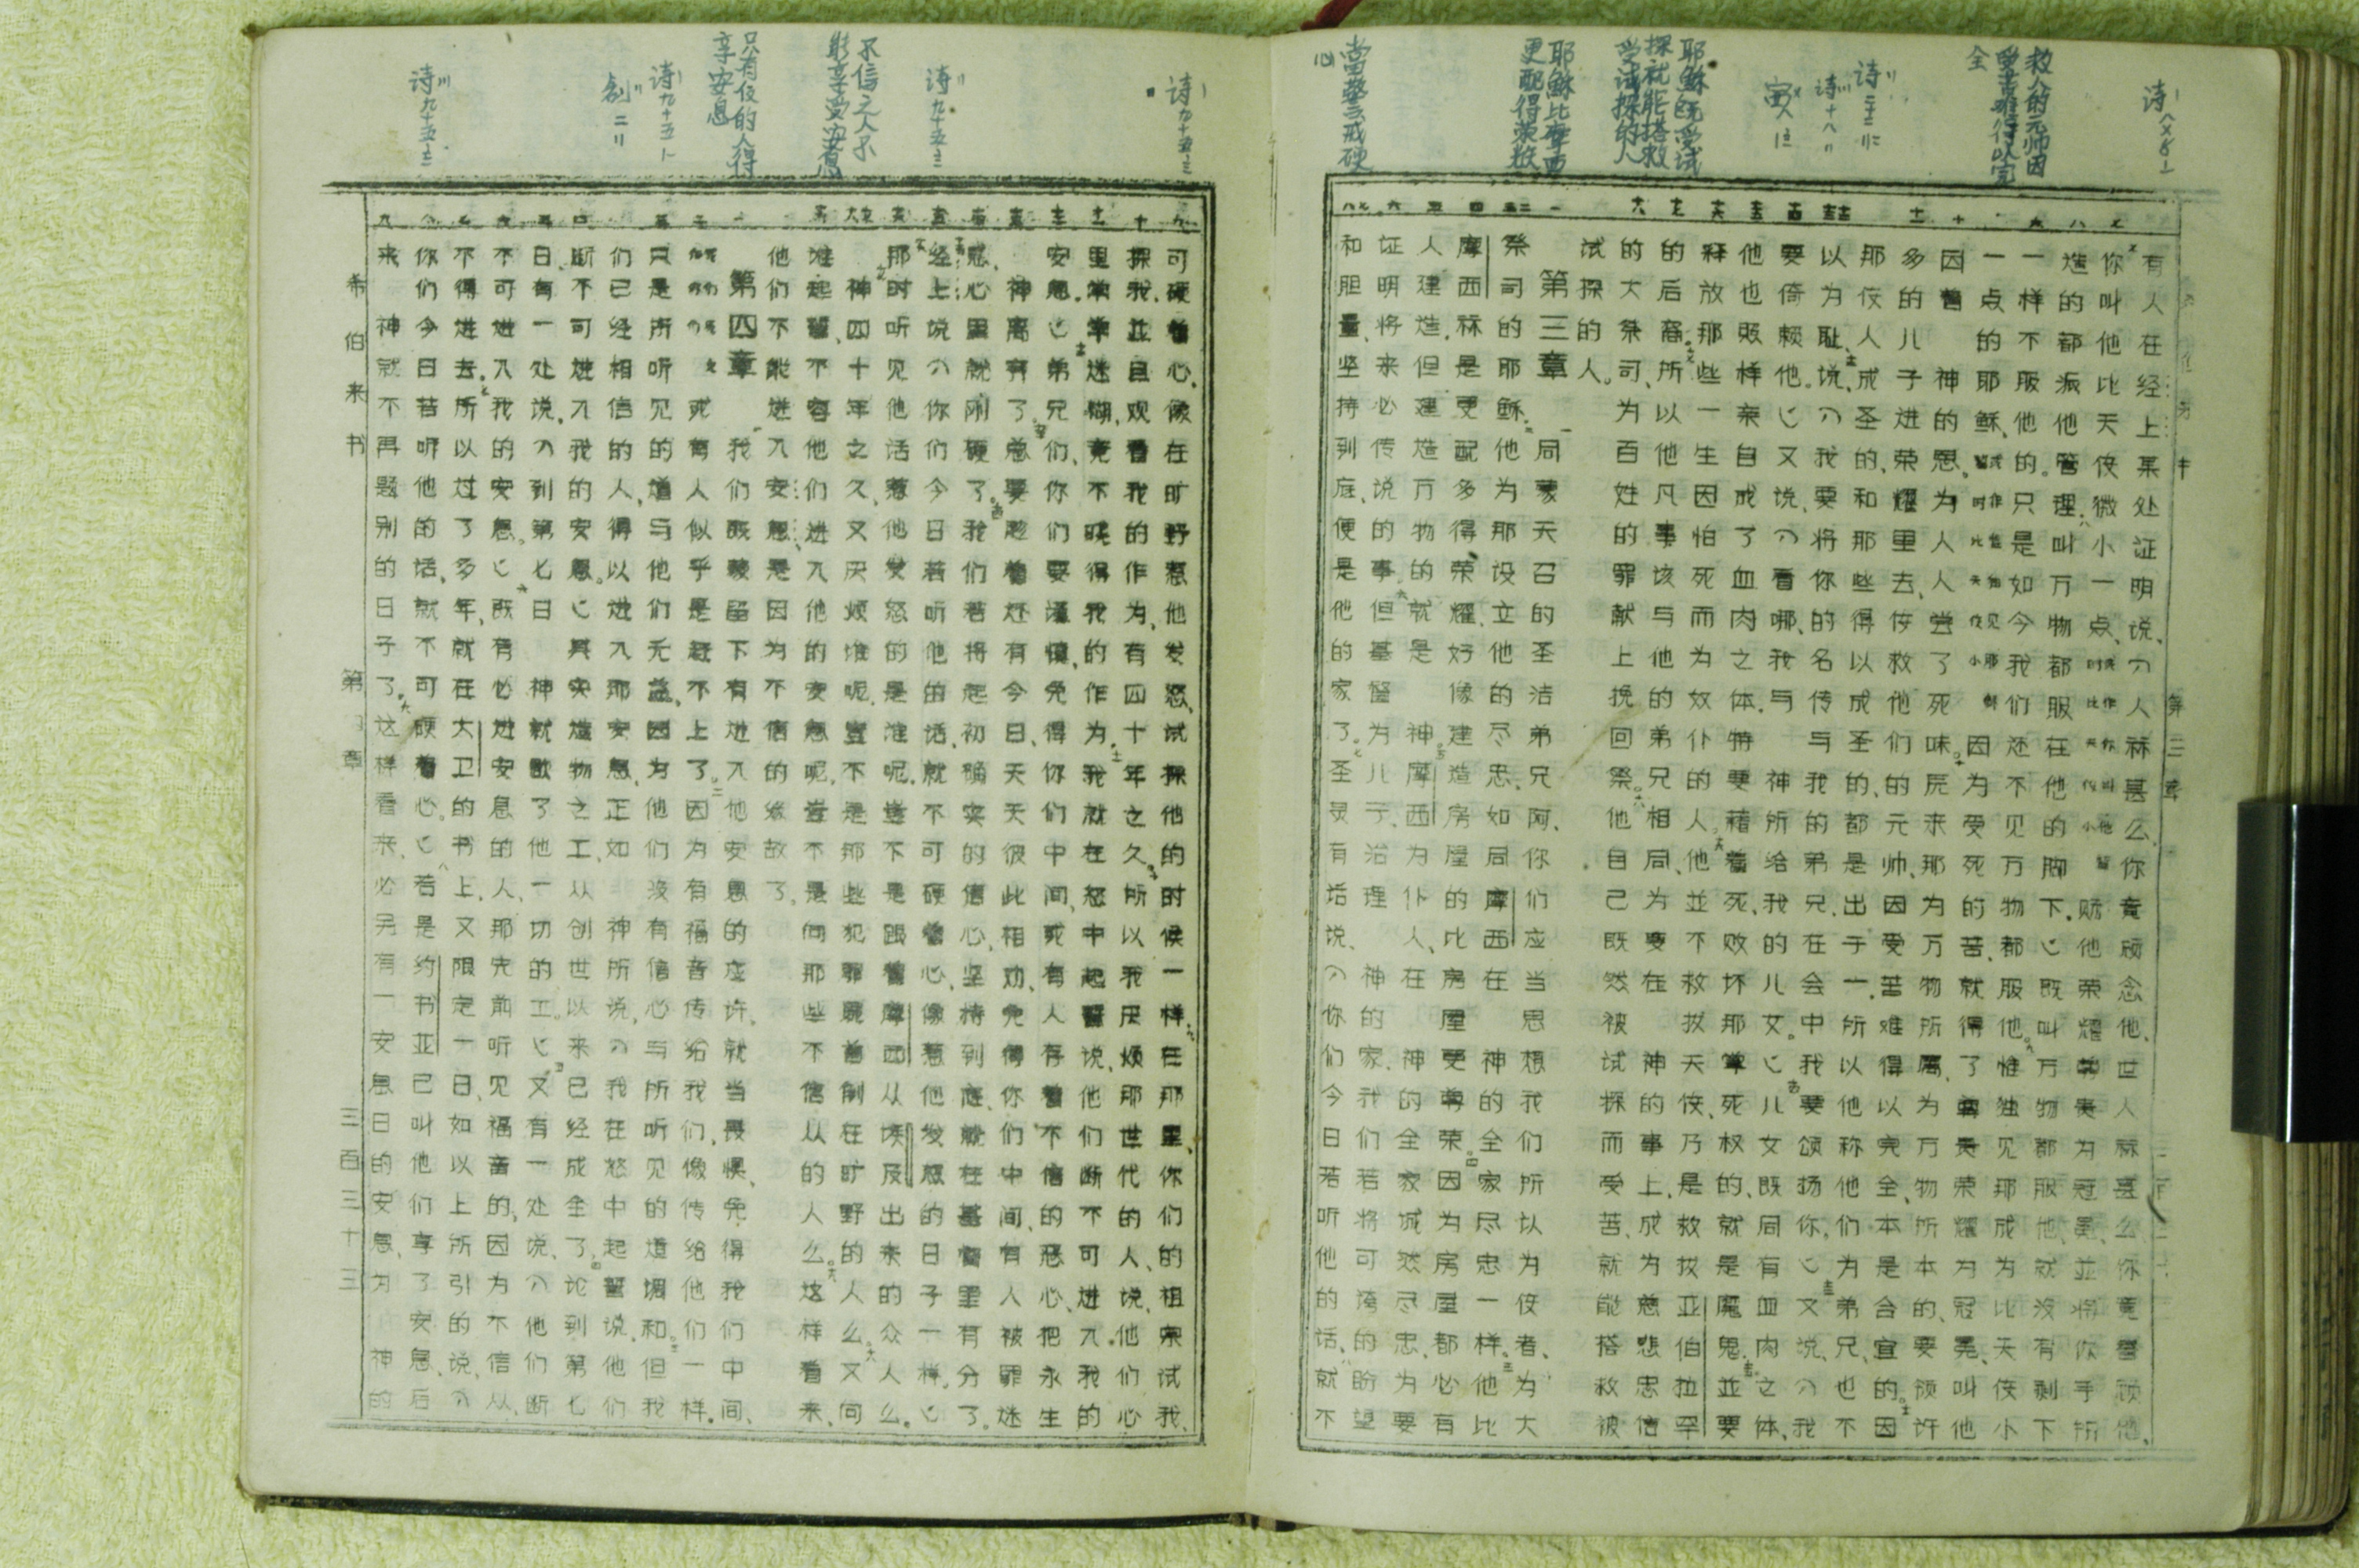 诗八 4-6
救人的元帅因
受苦难得以完
全
诗二十二 22
诗十八 2
赛八 18
耶稣既受试
探就能搭救
受试探的人
耶稣比摩西
更配得荣耀
当警戒硬
心
有人在经上某处证明说、「人祘甚么、你竟顾念他、世人祘甚么、你竟眷顾他、
你叫他比天使微小一点、赐他荣耀尊贵为冠冕、並将你手所
造的都派他管理、叫万物都服在他的脚下。」既叫万物都服他、就没有剩下
一样不服他的。只是如今我们还不见万物都服他。惟独见那成为比天使小
一点的耶稣、因为受死的苦、就得了尊贵荣耀为冠冕、叫他
因着 神的恩、为人人尝了死味。原来那为万物所属、为万物所本的、要领许
多的儿子进荣耀里去、使救他们的元帅、因受苦难得以完全、本是合宜的。因
那使人成圣的、和那些得以成圣的、都是出于一、所以他称他们为弟兄、也不
以为耻、说、「我要将你的名传与我的弟兄、在会中我要颂扬你。」又说、「我
要倚赖他。」又说、「看哪、我与 神所给我的儿女。」儿女既同有血肉之体、
他也照样亲自成了血肉之体、特要藉着死、败坏那掌死权的、就是魔鬼、並要
释放那些一生因怕死而为奴仆的人。他並不救拔天使、乃是救拔亚伯拉罕
的后裔。所以他凡事该与他的弟兄相同、为要在 神的事上、成为慈悲忠信
的大祭司、为百姓的罪献上挽回祭。他自己既然被试探而受苦、就能搭救被
试探的人。
第三章 同蒙天召的圣洁弟兄阿、你们应当思想我们所以为使者、为大
祭司的耶稣、他为那设立他的尽忠、如同摩西在 神的全家尽忠一样。他比
摩西祘是更配多得荣耀、好像建造房屋的比房屋更尊荣。因为房屋都必有
人建造、但建造万物的就是 神。摩西为仆人、在 神的全家诚然尽忠、为要
证明将来必传说的事。但基督为儿子、治理 神的家、我们若将可夸的盼望
和胆量、坚持到底、便是他的家了。圣灵有话说、「你们今日若听他的话、就不
诗九十五
诗九十五
不信之人不
能享受安息
只有信的人得
享安息
诗九十五
创二 2
诗九十五
可硬着心、像在旷野惹他发怒、试探他的时候一样、在那里、你们的祖宗试我、
探我、並且观看我的作为、有四十年之久。所以我厌烦那世代的人、说、他们心
里常常迷糊、竟不晓得我的作为、我就在怒中起誓说、他们断不可进入我的
安息。」弟兄们、你们要谨慎、免得你们中间、或有人存着不信的恶心、把永生
神离弃了。总要趁着还有今日、天天彼此相劝、免得你们中间、有人被罪迷
惑、心里就刚硬了。我们若将起初确实的信心、坚持到底、就在基督里有分了。
经上说「你们今日若听他的话、就不可硬着心、像惹他发怒的日子一样。」
那时听见他话惹他发怒的是谁呢、岂不是跟着摩西从埃及出来的众人么。
神四十年之久、又厌烦谁呢、岂不是那些犯罪尸首倒在旷野的人么。又向
谁起誓、不容他们进入他的安息呢、岂不是向那些不信从的人么。这样看来、
他们不能进入安息、是因为不信的缘故了。
第四章 我们既蒙留下有进入他安息的应许、就当畏惧、免得我们中间、
或有人似乎是赶不上了。因为有福音传给我们、像传给他们一样。
只是所听见的道与他们无益、因为他们没有信心与所听见的道调和。但我
们已经相信的人、得以进入那安息、正如 神所说、「我在怒中起誓说、他们
断不可进入我的安息。」其实造物之工、从创世以来已经成全了。论到第七
日、有一处说、「到第七日 神就歇了他一切的工。」又有一处说、「他们断
不可进入我的安息。」既有必进安息的人、那先前听见福音的、因为不信从、
不得进去。所以过了多年、就在大卫的书上、又限定一日、如以上所引的说、「
你们今日若听他的话、就不可硬着心。」若是约书亚已叫他们享了安息、后
来 神就不再题别的日子了。这样看来、必另有一安息日的安息、为 神的
希伯来书
第四章
三百三十三